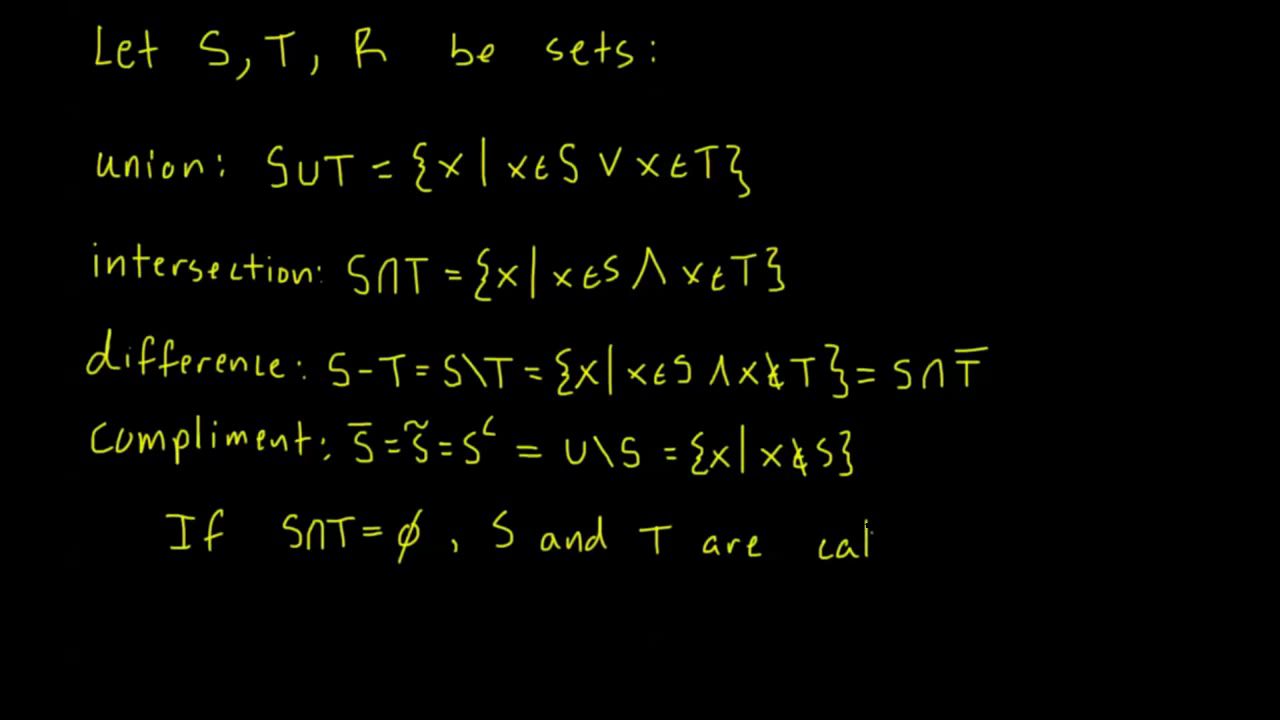 Let S, T, R be sets:
union: S∪T = {x | x∈S ∨ x∈T}
intersection: S∩T = {x | x∈S ∧ x∈T}
difference: S-T = S\T = {x | x∈S ∧ x∉T} = S∩T̅
Compliment: S̅ = S̃ = Sᶜ = U\S = {x | x∉S}
If S∩T = ∅, S and T are cal